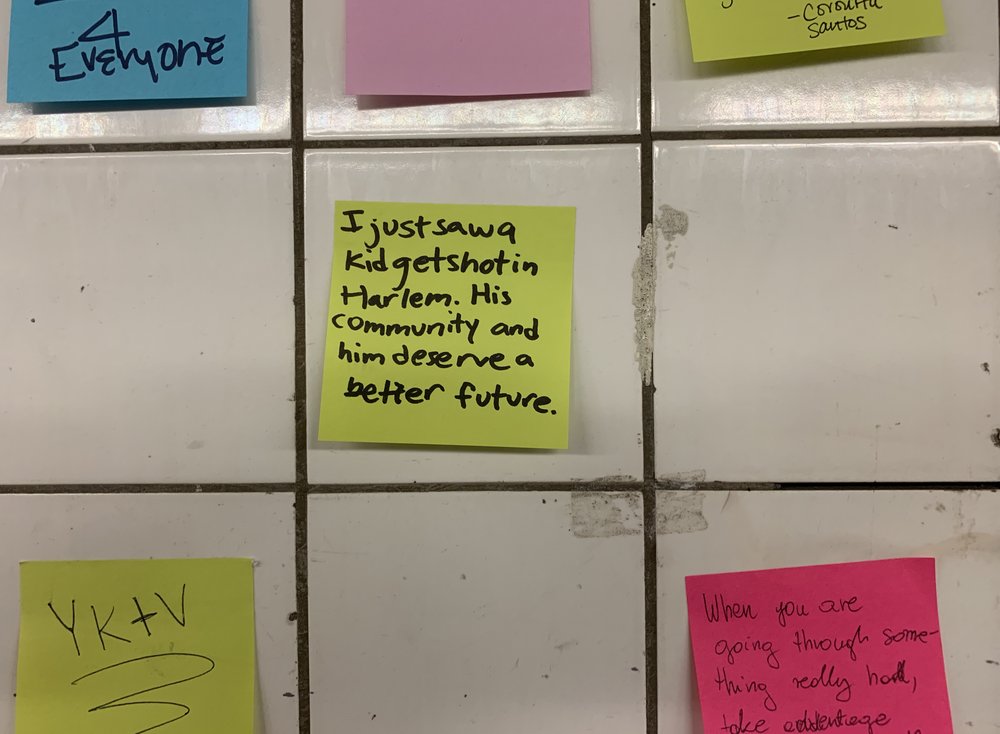 4
Everyone
-Coronita
Santos
I just saw a
kid get shot in
Harlem. His
community and
him deserve a
better future.
YK+V
When you are
going through some-
thing really hard,
take advantage